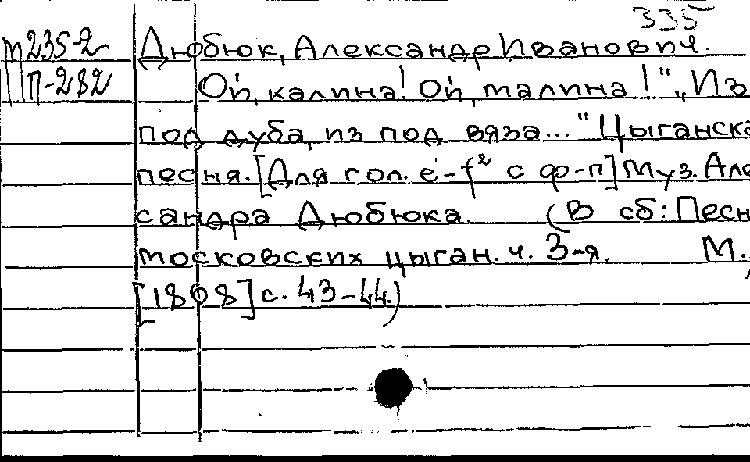 335
М235-2 Дюбюк, Александр Иванович.
П-282 Ой, калина! Ой, малина!" „Из
под дуба, из под вяза..." Цыганска
песня. [Для гол. e-f² с ф-п] Муз. Але
сандра Дюбюка. (В сб: Песн
московских цыган. ч. 3-я. М.,
[1808] с. 43-44.)